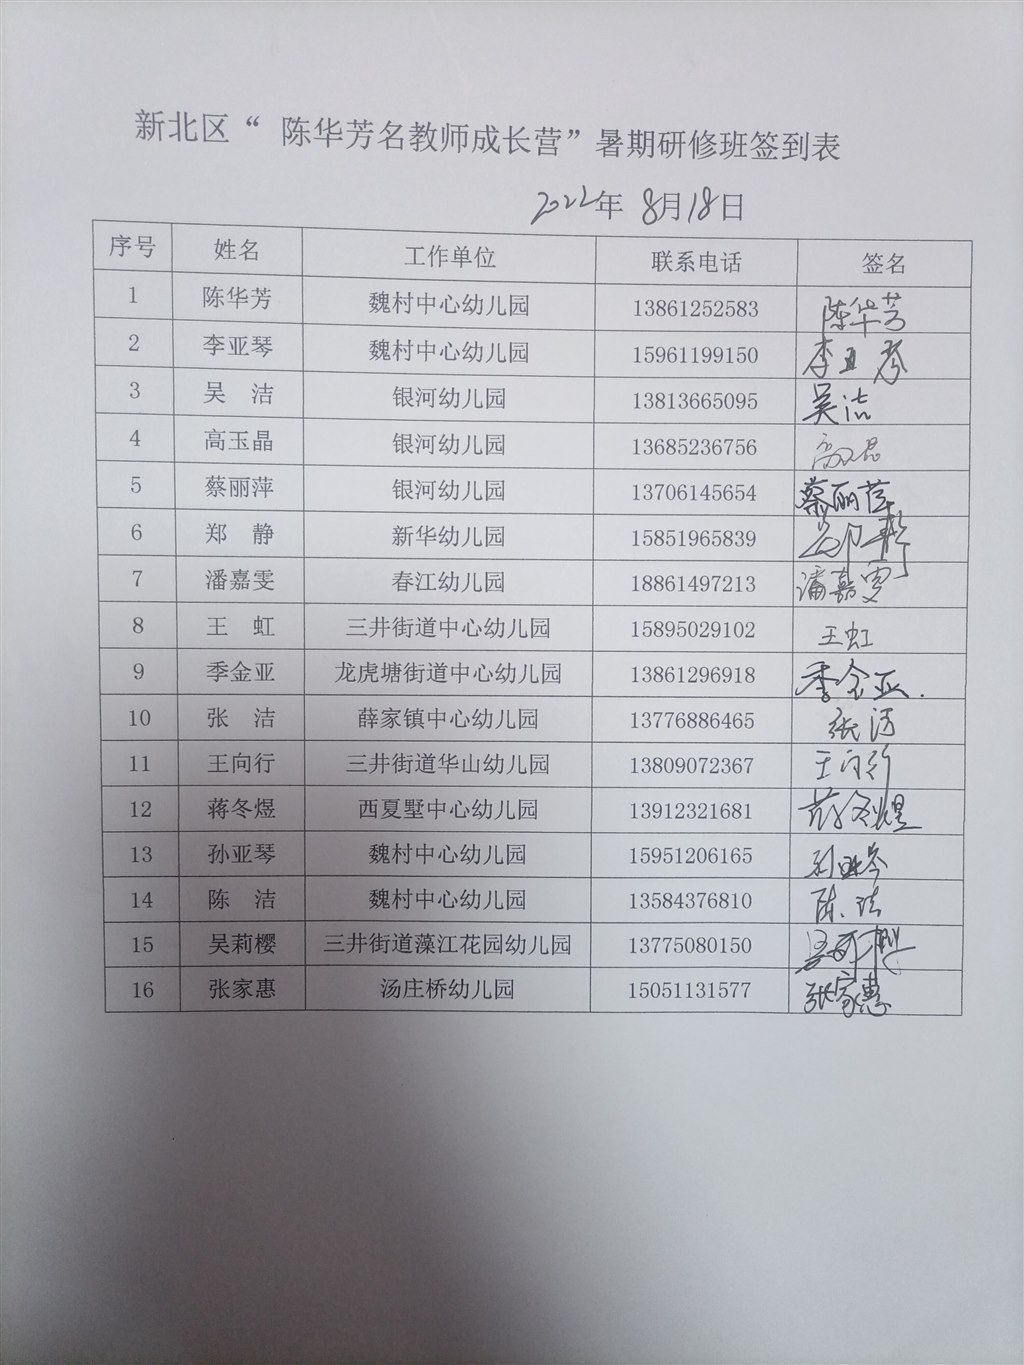 新北区“ 陈华芳名教师成长营”暑期研修班签到表
2022年 8月18日
序号 姓名 工作单位 联系电话 签名
1 陈华芳 魏村中心幼儿园 13861252583 陈华芳
2 李亚琴 魏村中心幼儿园 15961199150 李亚琴
3 吴 洁 银河幼儿园 13813665095 吴洁
4 高玉晶 银河幼儿园 13685236756 高玉晶
5 蔡丽萍 银河幼儿园 13706145654 蔡丽萍
6 郑 静 新华幼儿园 15851965839 郑静
7 潘嘉雯 春江幼儿园 18861497213 潘嘉雯
8 王 虹 三井街道中心幼儿园 15895029102 王虹
9 季金亚 龙虎塘街道中心幼儿园 13861296918 季金亚.
10 张 洁 薛家镇中心幼儿园 13776886465 张洁
11 王向行 三井街道华山幼儿园 13809072367 王向行
12 蒋冬煜 西夏墅中心幼儿园 13912321681 蒋冬煜
13 孙亚琴 魏村中心幼儿园 15951206165 孙亚琴
14 陈 洁 魏村中心幼儿园 13584376810 陈洁
15 吴莉樱 三井街道藻江花园幼儿园 13775080150 吴莉樱
16 张家惠 汤庄桥幼儿园 15051131577 张家惠